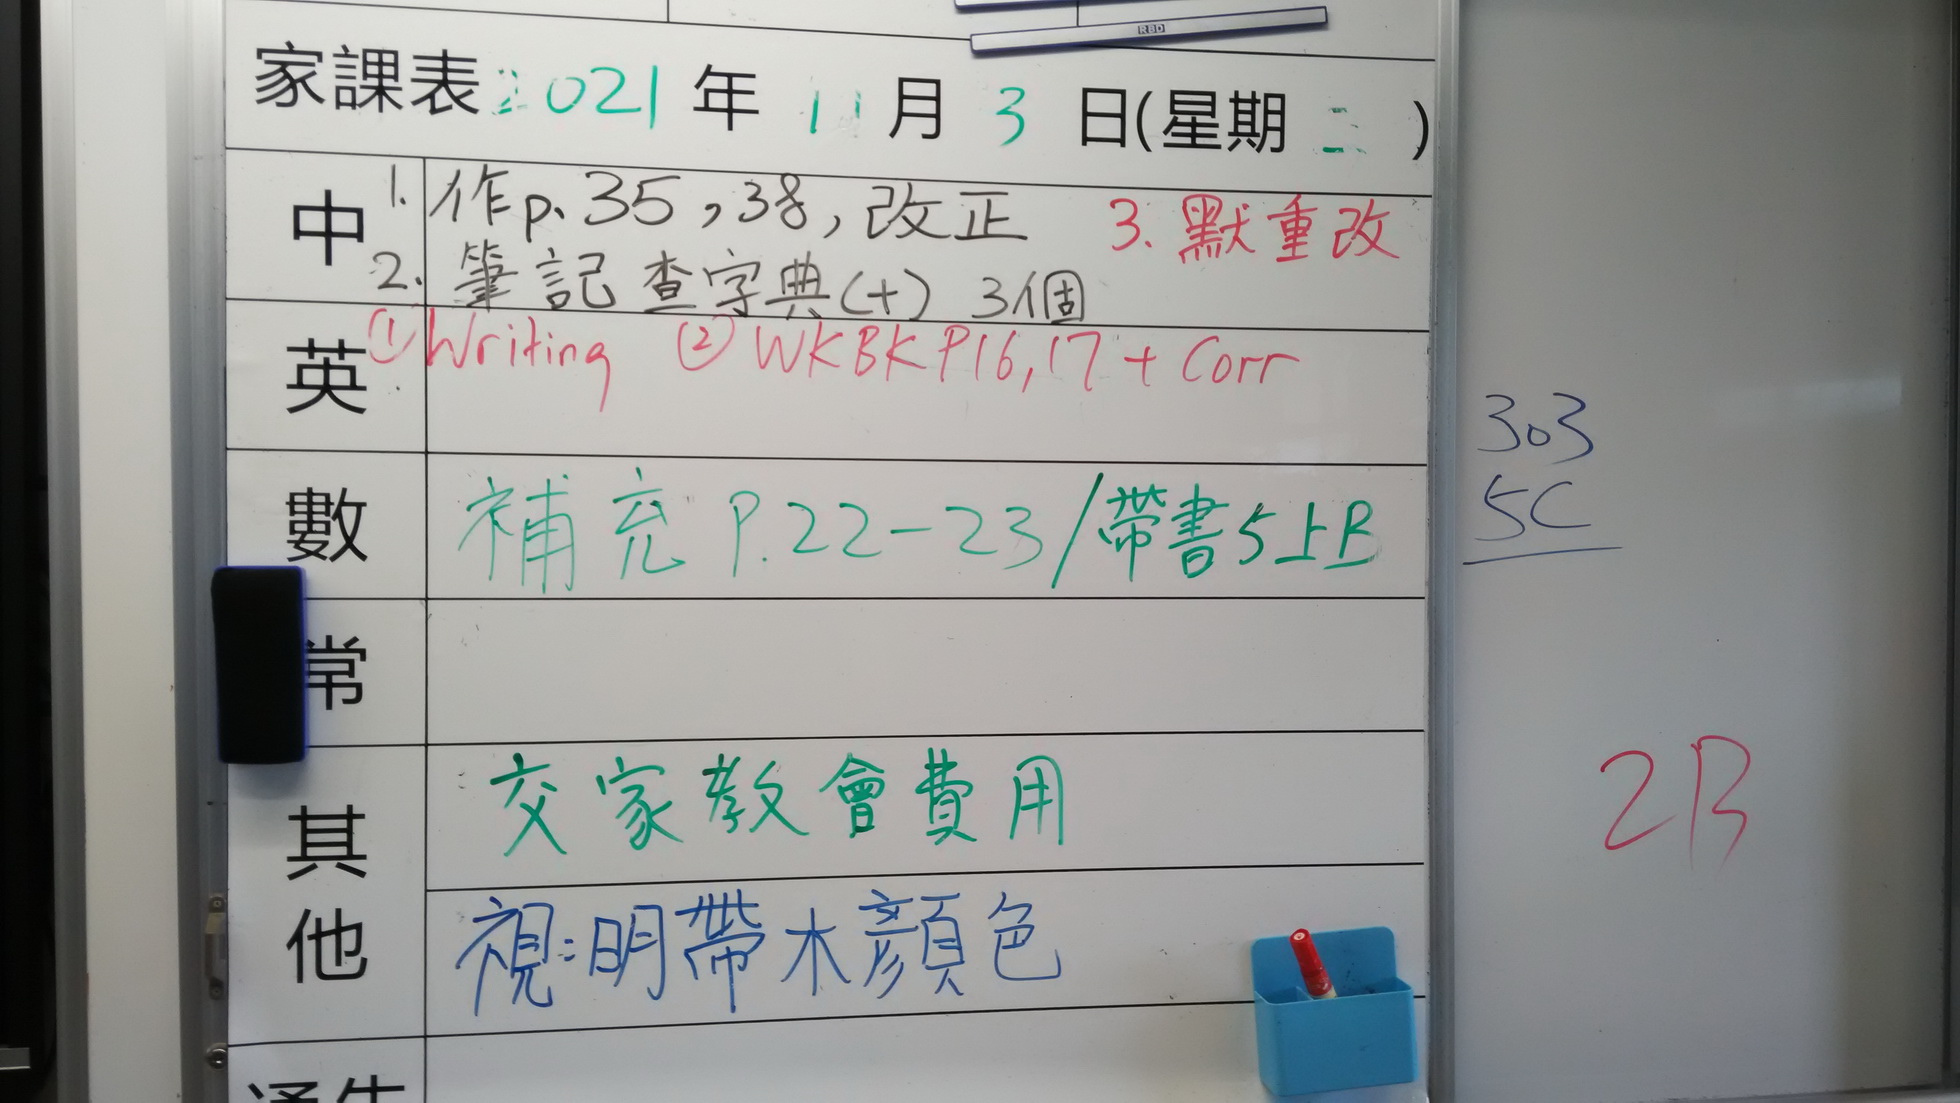 RBD
家課表 2021 年 11 月 3 日(星期 )
中
1. 作p. 35,38,改正 3. 默重改
2. 筆記 查字典(十) 3個
英
①Writing ②WKBKP16,17 + Corr
303
5C
數
補充 P.22-23/帶書5上B
常
其他
交家教會費用
2B
視:明帶木顏色
通告